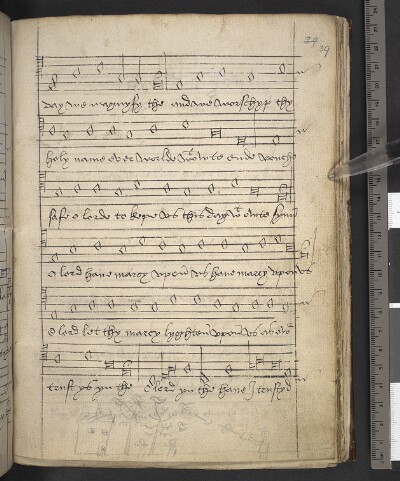 39
39
day we magnyfy the and we worshyp thy
holy name ever worlde wtowte ende vouche
safe o lorde to kepe vs this day wt owte synne
o lord have marcy vpon vs have marcy vpon vs
o lord let thy marcy lyghten vpon vs as owr
trust ys yn the o lord yn the have I trustyd